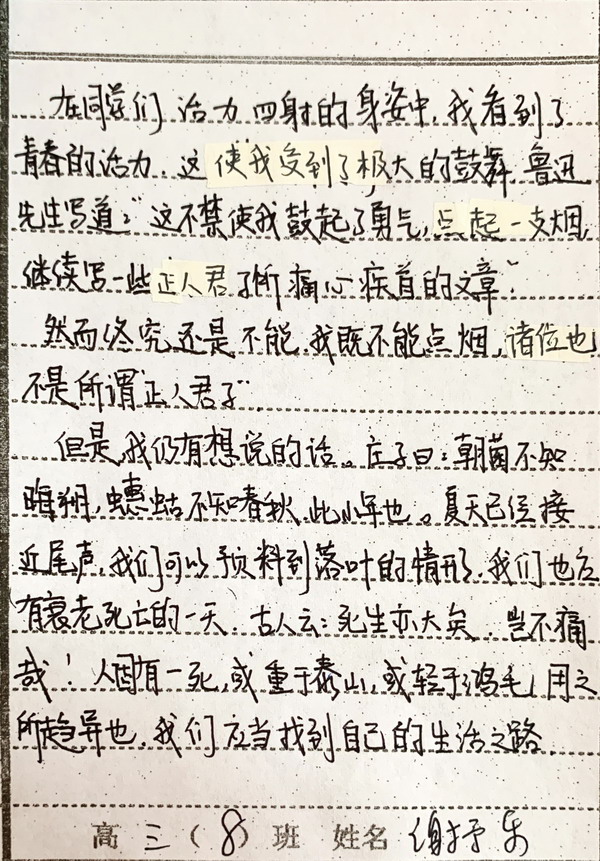 在同学们活力四射的身姿中，我看到了
青春的活力．这使我受到了极大的鼓舞．鲁迅
先生写道：“这不禁使我鼓起了勇气，点起一支烟，
继续写一些正人君子所痛心疾首的文章”．
然而终究还是不能，我既不能点烟，诸位也
不是所谓“正人君子”．
但是，我仍有想说的话。庄子曰：朝菌不知
晦朔，蟪蛄不知春秋，此小年也。夏天已经接
近尾声，我们可以预料到落叶的情形，我们也应
有衰老死亡的一天．古人云：死生亦大矣．岂不痛
哉！人固有一死，或重于泰山，或轻于鸿毛，用之
所趋异也，我们应当找到自己的生活之路．
高三（8）班 姓名